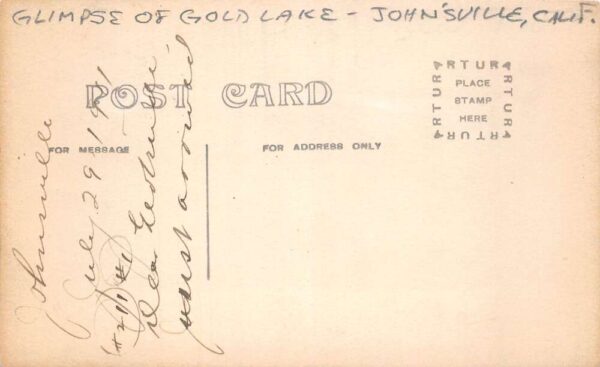 GLIMPSE OF GOLD LAKE - JOHN'SVILLE, CALIF.
POST CARD
FOR MESSAGE
FOR ADDRESS ONLY
ARTURA
PLACE
STAMP
HERE
ARTURA
ARTURA
ARTURA
Johnsville
July 29 - 1911
Dear
just arrived